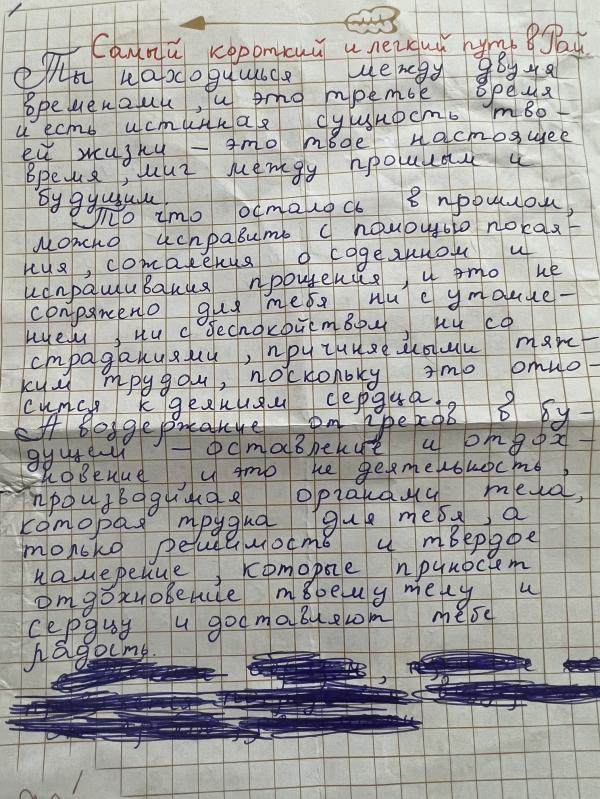 Самый короткий и легкий путь в Рай.
Ты находишься между двумя
временами, и это третье время
и есть истинная сущность тво-
ей жизни – это твое настоящее
время, миг между прошлым и
будущим.
То что осталось в прошлом,
можно исправить с помощью покая-
ния, сожаления о содеянном и
испрашивания прощения, и это не
сопряжено для тебя ни с утомле-
нием, ни с беспокойством, ни со
страданиями, причиняемыми тяж-
ким трудом, поскольку это отно-
сится к деяниям сердца.
А воздержание от грехов в бу-
дущем – оставление и отдох-
новение, и это не деятельность,
производимая органами тела,
которая трудна для тебя, а
только решимость и твердое
намерение, которые приносят
отдохновение твоему телу и
сердцу и доставляют тебе
радость.